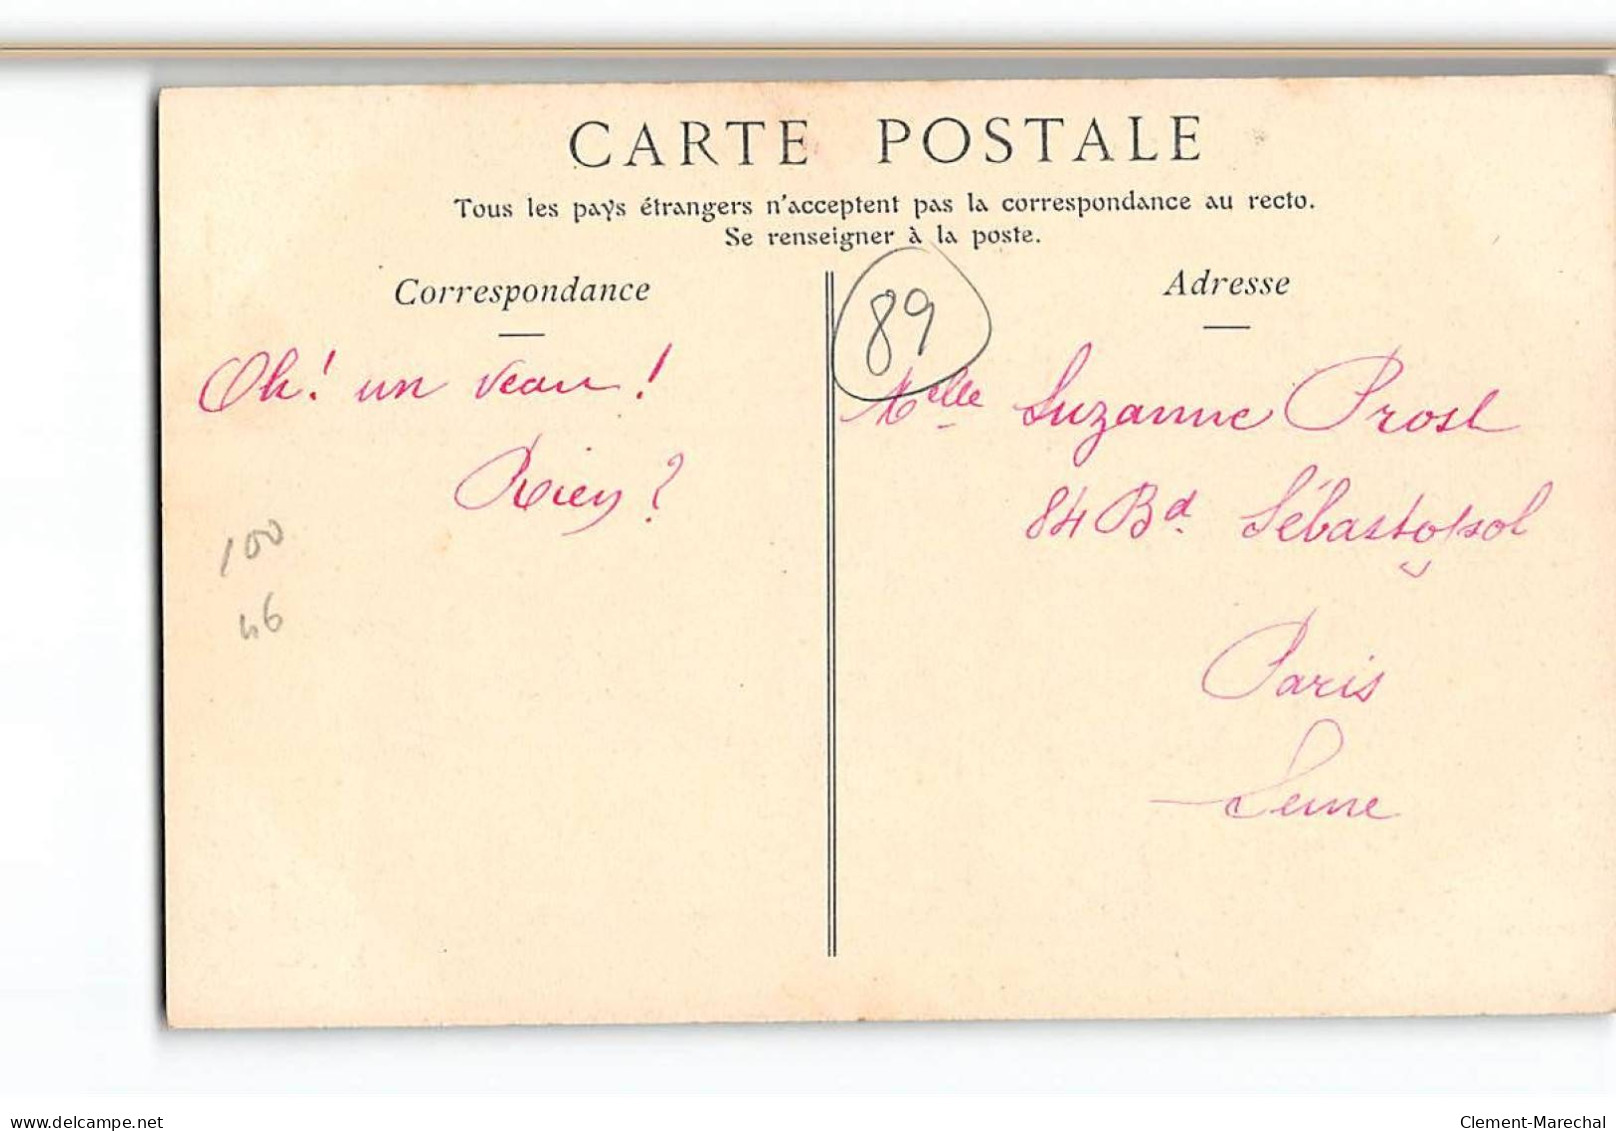 CARTE POSTALE
Tous les pays étrangers n'acceptent pas la correspondance au recto.
Se renseigner à la poste.
Correspondance
Adresse
89
Oh! un veau!
Rien?
100
46
Melle Suzanne Prost
84 Bd Sébastopol
Paris
Seine
delcampe.net
Clement-Marechal